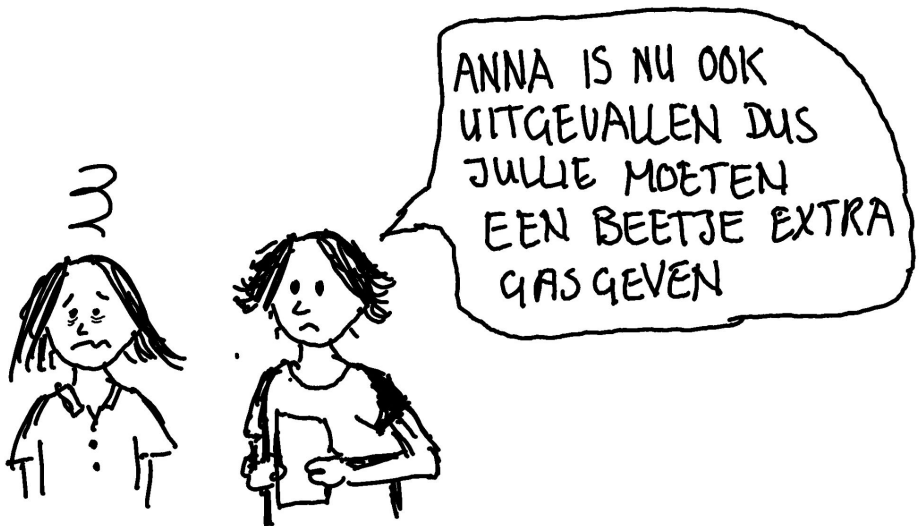 ANNA IS NU OOK
UITGEVALLEN DUS
JULLIE MOETEN
EEN BEETJE EXTRA
GAS GEVEN